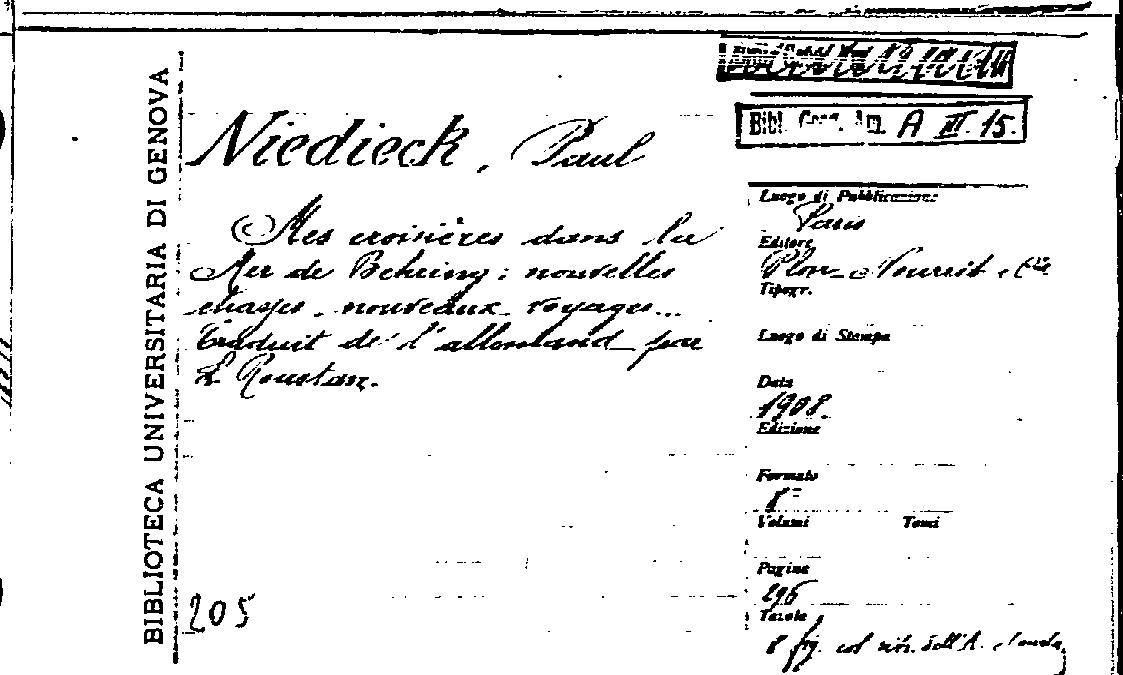 BIBLIOTECA UNIVERSITARIA DI GENOVA
Bibl. A III. 15.
Niedieck, Paul
Mes croisières dans la
Mer de Behring: nouvelles
chasses, nouveaux voyages...
Traduit de l'allemand par
L. Roustan.
205
Luogo di Pubblicazione
Paris
Editore
Plon-Nourrit, Cie
Tipogr.
Luogo di Stampa
Data
1908
Edizione
Formato
8°
Volumi Tomi
Pagine
296
Tavole
8 fig. col. dell'A.